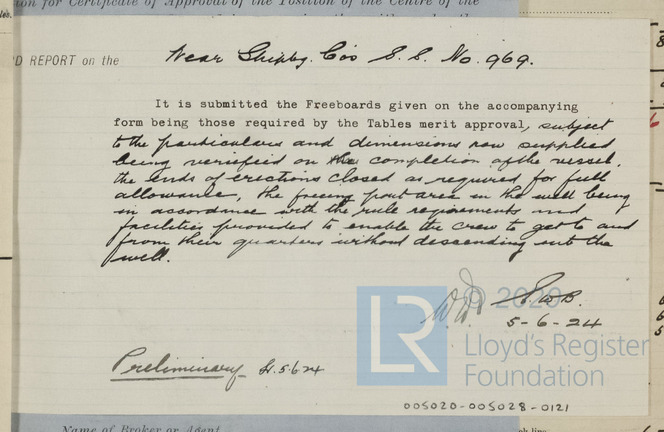 ion for Certificate of Approval of the Position of the Centre of the
D REPORT on the
Wear Shipbg. Co's S. S. No. 969.
It is submitted the Freeboards given on the accompanying
form being those required by the Tables merit approval, subject
to the particulars and dimensions now supplied
being verified on the completion of the vessel,
the ends of erections closed as required for full
allowance, the freeing port area in the well being
in accordance with the rule requirements and
facilities provided to enable the crew to get to and
from their quarters without descending into the
well.
© 2020
5-6-24
Lloyd's Register
Foundation
LR
Preliminary 5.6.24
005020-005028-0121
Name of Broker or Agent